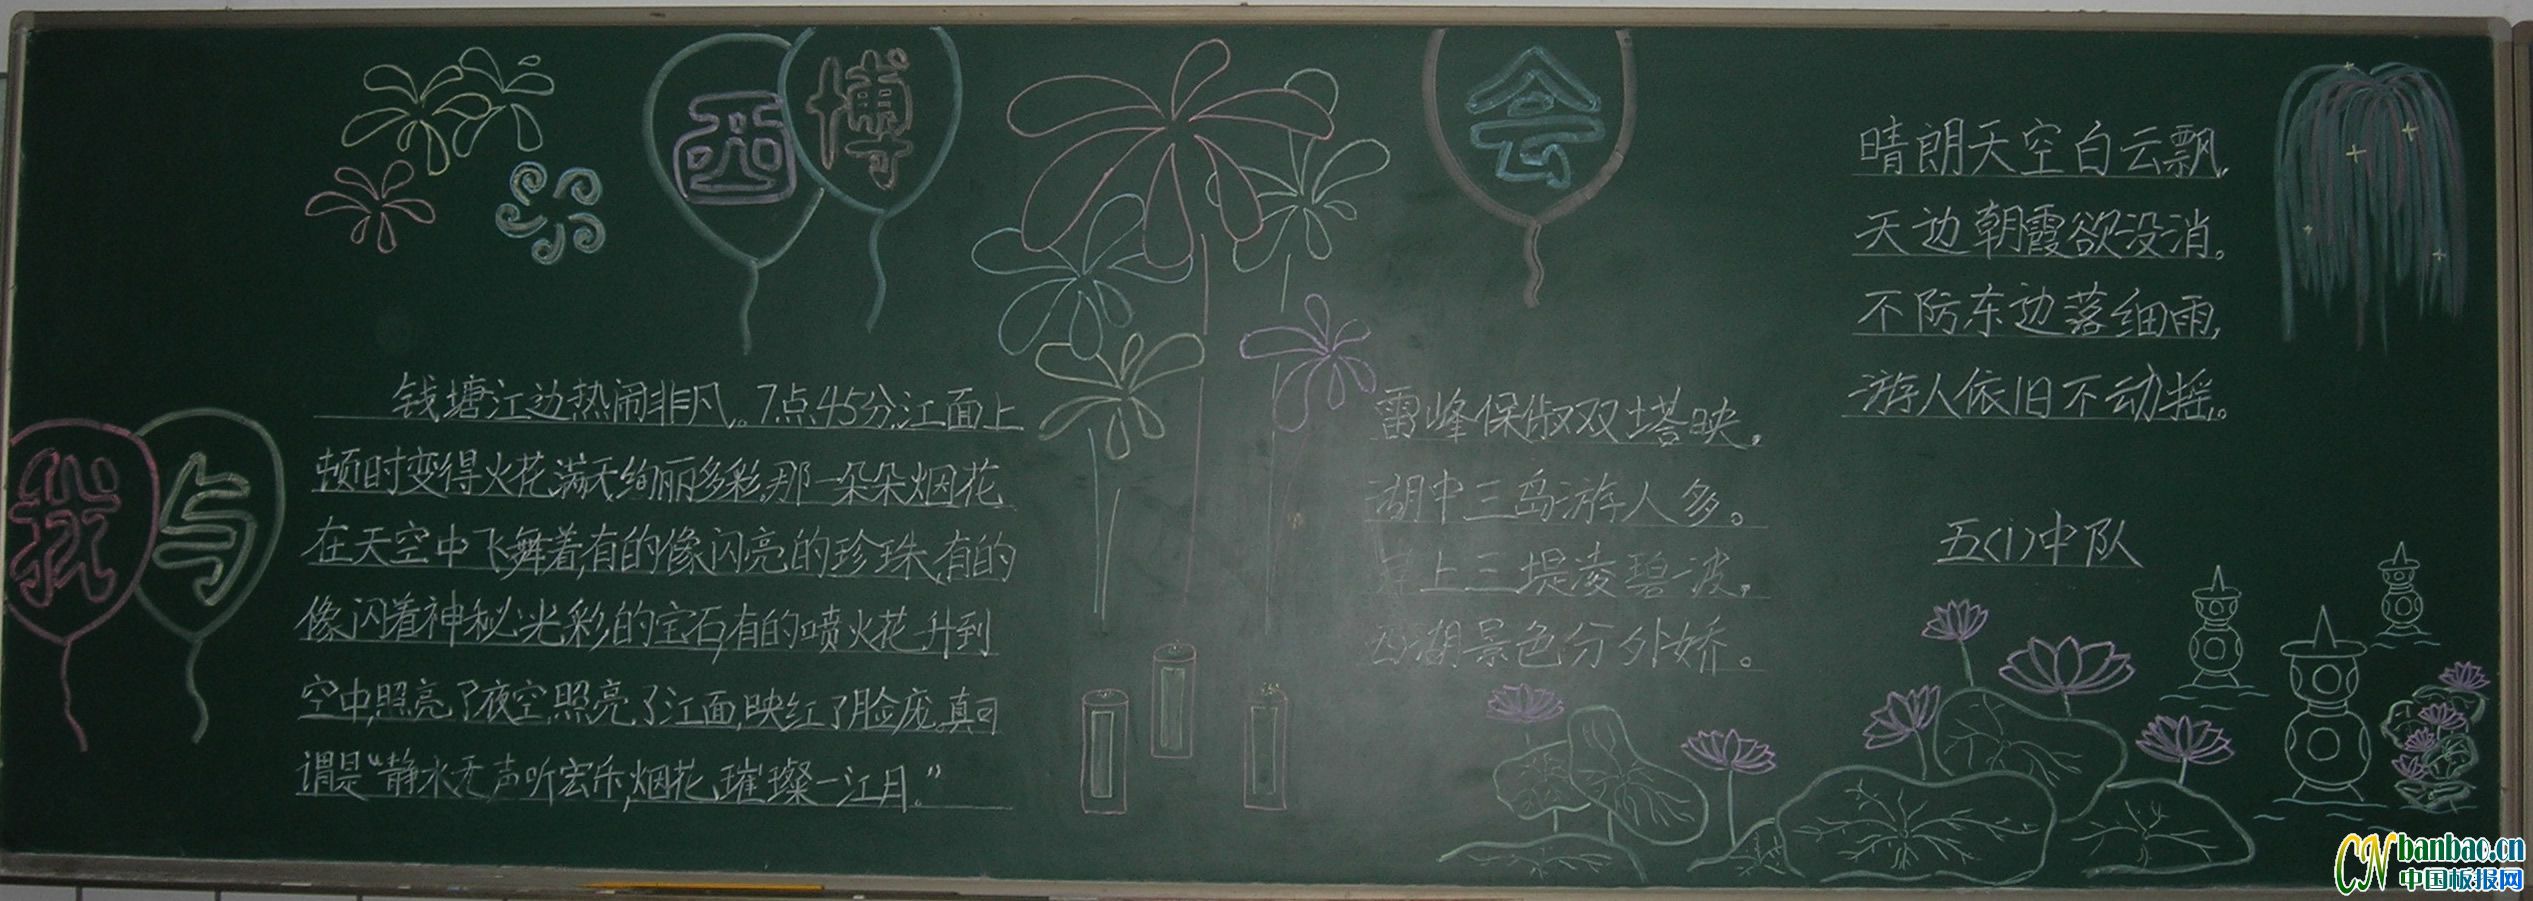 我与
西博会
钱塘江边热闹非凡。7点45分,江面上
顿时变得火花满天,绚丽多彩,那一朵朵烟花
在天空中飞舞着,有的像闪亮的珍珠,有的
像闪着神秘光彩的宝石,有的喷火花升到
空中,照亮了夜空,照亮了江面,映红了脸庞。真可
谓是“静水无声听宏乐,烟花璀璨一江月。”
雷峰保俶双塔映,
湖中三岛游人多。
早上三堤凌碧波,
西湖景色分外娇。
晴朗天空白云飘,
天边朝霞欲没消。
不防东边落细雨,
游人依旧不动摇。
五(1)中队
CN banbao.cn
中国板报网